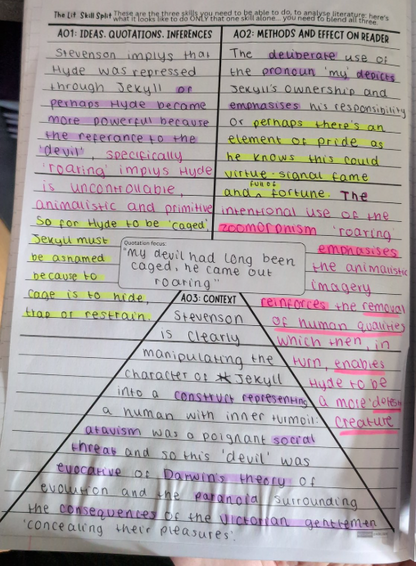 The Lit. Skill Split These are the three skills you need to be able to do, to analyse literature: here's
what it looks like to do ONLY that one skill alone... you need to blend all three.
AO1: IDEAS, QUOTATIONS, INFERENCES
Stevenson implys that
Hyde was repressed
through Jekyll or
perhaps Hyde became
more powerful because
the referance to the
'devil', specifically
'roaring' implys Hyde
is uncontrollable,
animalistic and primitive
So for Hyde to be 'caged'
Jekyll must
be ashamed
because to
cage is to hide,
trap or restrain.
AO2: METHODS AND EFFECT ON READER
The deliberate use of
the pronoun 'my' depicts
Jekyll's ownership and
emphasises his responsibility
or perhaps there's an
element of pride as
he knows this could
virtue-signal fame
full of
and fortune. The
intentional use of the
zoomorphism 'roaring'
emphasises
the animalistic
imagery
reinforces the removal
of human qualities
which then, in
turn, enables
Hyde to be
a more
creature
Quotation focus:
"My devil had long been
caged, he came out
roaring"
AO3: CONTEXT
Stevenson
is clearly
manipulating the
character of Jekyll
into a construct representing
a human with inner turmoil:
atavism was a poignant social
threat and so this 'devil' was
evocative of Darwin's theory of
evolution and the paranoid surrounding
the consequences of the Victorian gentlemen
'concealing their pleasures'.